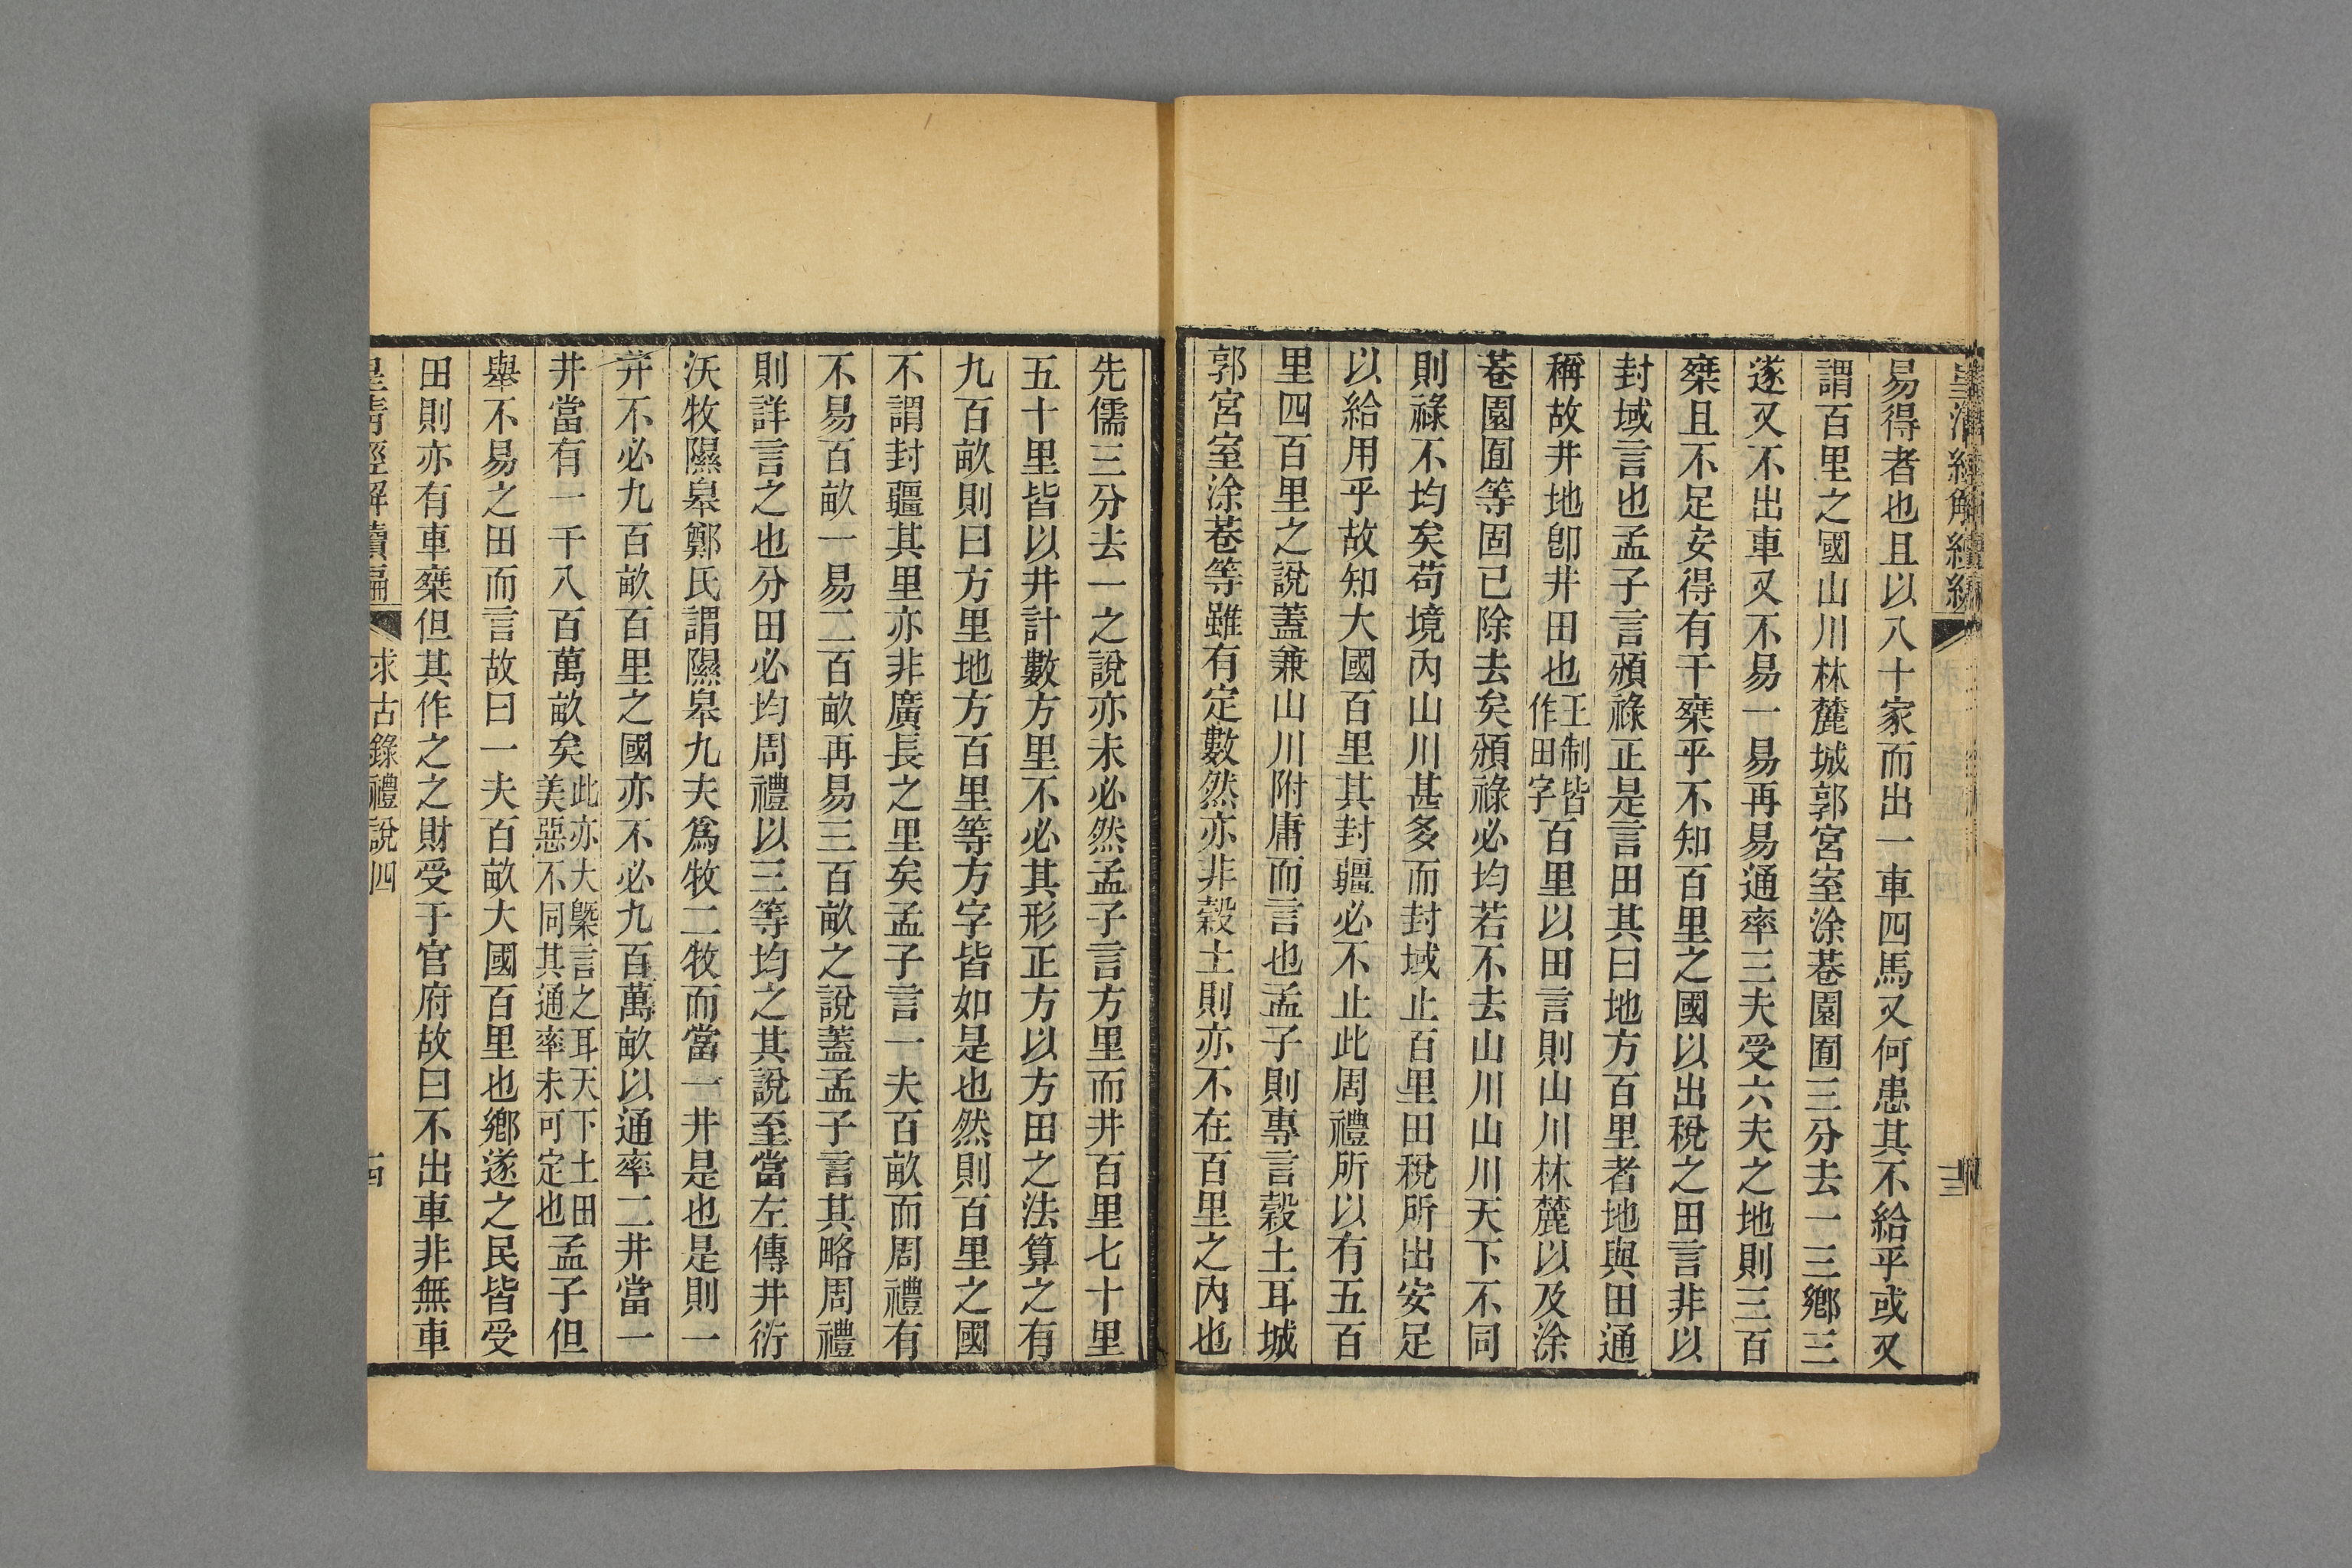 皇清經解續編
三
易得者也且以八十家而出一車四馬又何患其不給乎或又
謂百里之國山川林麓城郭宮室涂巷園囿三分去一三鄉三
遂又不出車又不易一易再易通率三夫受六夫之地則三百
椉且不足安得有千椉乎不知百里之國以出稅之田言非以
封域言也孟子言頒祿正是言田其曰地方百里者地與田通
稱故井地卽井田也王制皆作田字百里以田言則山川林麓以及涂
巷園囿等固已除去矣頒祿必均若不去山川山川天下不同
則祿不均矣苟境內山川甚多而封域止百里田稅所出安足
以給用乎故知大國百里其封疆必不止此周禮所以有五百
里四百里之說蓋兼山川附庸而言也孟子則專言穀土耳城
郭宮室涂巷等雖有定數然亦非穀土則亦不在百里之內也
先儒三分去一之說亦未必然孟子言方里而井百里七十里
五十里皆以井計數方里不必其形正方以方田之法算之有
九百畝則曰方里地方百里等方字皆如是也然則百里之國
不謂封疆其里亦非廣長之里矣孟子言一夫百畝而周禮有
不易百畝一易二百畝再易三百畝之說蓋孟子言其略周禮
則詳言之也分田必均周禮以三等均之其說至當左傳井衍
沃牧隰皋鄭氏謂隰皋九夫爲牧二牧而當一井是也是則一
井不必九百畝百里之國亦不必九百萬畝以通率二井當一
井當有一千八百萬畝矣此亦大槩言之耳天下土田美惡不同其通率未可定也孟子但
舉不易之田而言故曰一夫百畝大國百里也鄉遂之民皆受
田則亦有車椉但其作之之財受于官府故曰不出車非無車
皇清經解續編
求古錄禮說四